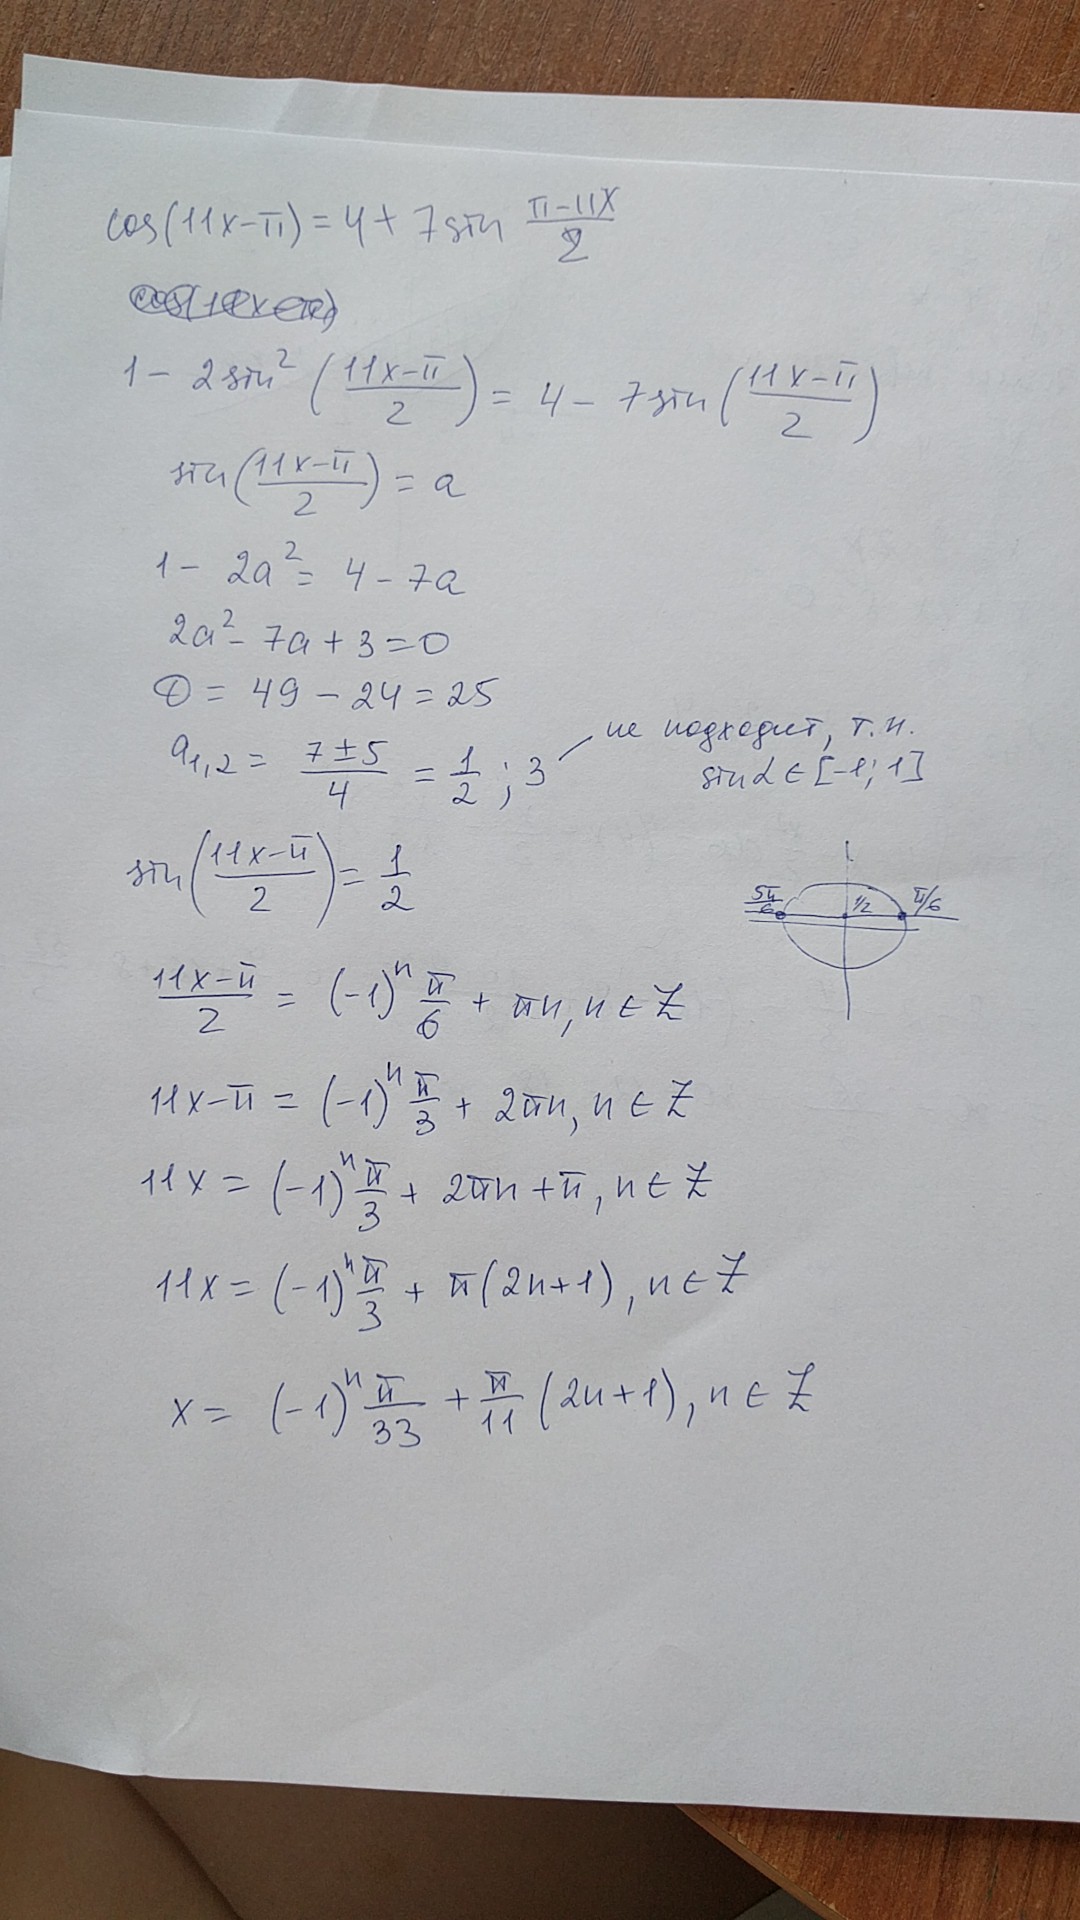 cos(11x-π) = 4 + 7sin (π-11x)/2
1 - 2sin² ((11x-π)/2) = 4 - 7sin ((11x-π)/2)
sin((11x-π)/2) = a
1 - 2a² = 4 - 7a
2a² - 7a + 3 = 0
D = 49 - 24 = 25
a₁,₂ = (7±5)/4 = 1/2 ; 3
не подходит, т.к.
sin α ∈ [-1; 1]
sin((11x-π)/2) = 1/2
5π/6 1/2 π/6
(11x-π)/2 = (-1)ⁿ π/6 + πn, n ∈ Z
11x-π = (-1)ⁿ π/3 + 2πn, n ∈ Z
11x = (-1)ⁿ π/3 + 2πn + π, n ∈ Z
11x = (-1)ⁿ π/3 + π(2n+1), n ∈ Z
x = (-1)ⁿ π/33 + π/11 (2n+1), n ∈ Z